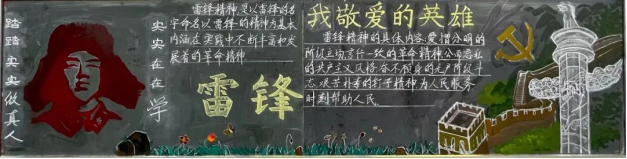 踏踏实实做真人
雷锋精神,是以雷锋的名
字命名以雷锋的精神为基本
内涵在实践中不断丰富和发
展着的革命精神
实实在在学
雷锋
我敬爱的英雄
雷锋精神的具体内容,爱憎分明的
阶级立场言行一致的革命精神公而忘私
的共产主义风格奋不顾身的无产阶级斗
志,艰苦朴素的钉子精神为人民服务
时刻帮助人民